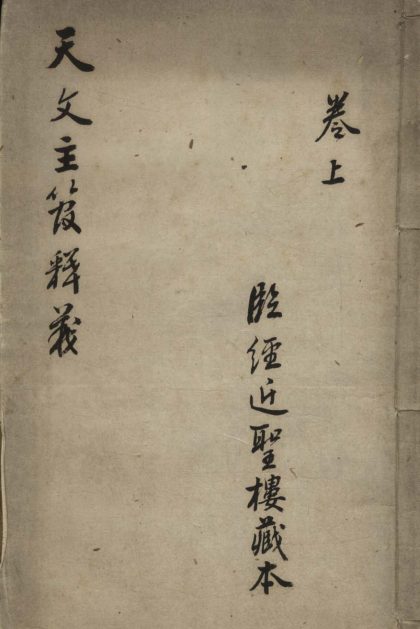 卷上
經近聖樓藏本
天文主管释義